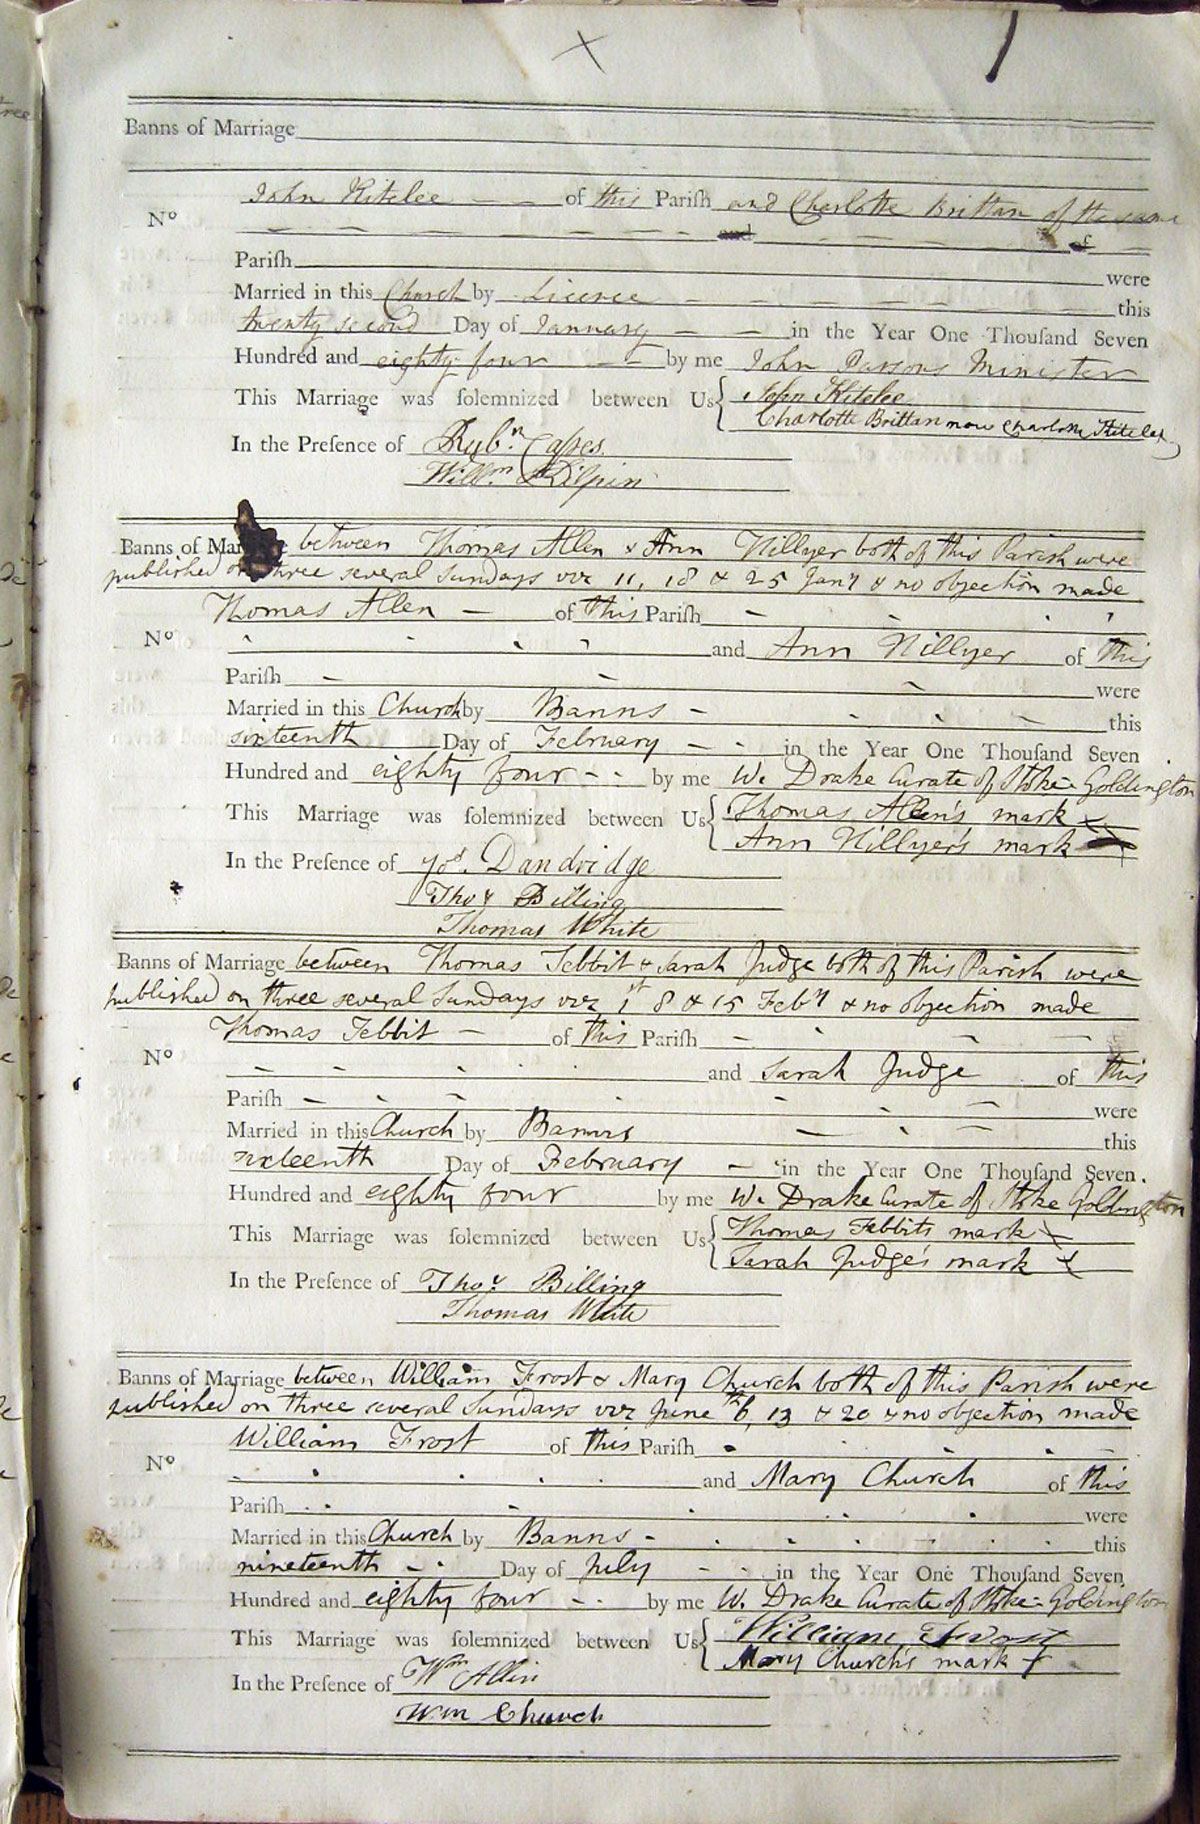 Banns of Marriage
John Kitelee of this Parish and Charlotte Brittan of the same
No
and of
Parish were
Married in this Church by Licence this
twenty second Day of January in the Year One Thouſand Seven
Hundred and eighty four by me John Parsons Minister
This Marriage was ſolemnized between Us John Kitelee
Charlotte Brittan now Charlotte Kitelee
In the Preſence of Rubn. Capes.
Willm. Kilpin
Banns of Marriage between Thomas Allen & Ann Hillyer both of this Parish were
published on three several Sundays viz 11, 18 & 25 Jany & no objection made
Thomas Allen of this Pariſh
No and Ann Hillyer of this
Pariſh were
Married in this Church by Banns this
sixteenth Day of February in the Year One Thouſand Seven
Hundred and eighty four by me W. Drake Curate of Stoke-Goldington
This Marriage was ſolemnized between Us Thomas Allen's mark X
Ann Hillyer's mark X
In the Preſence of Jos. Dandridge
Thos Billing
Thomas White
Banns of Marriage between Thomas Tebbit & Sarah Judge both of this Parish were
published on three several Sundays viz 1st 8 & 15 Feby & no objection made
Thomas Tebbit of this Pariſh
No and Sarah Judge of this
Pariſh were
Married in this Church by Banns this
sixteenth Day of February in the Year One Thouſand Seven.
Hundred and eighty four by me W. Drake Curate of Stoke Goldington
This Marriage was ſolemnized between Us Thomas Tebbits mark X
Sarah Judge's mark X
In the Preſence of Thos. Billing
Thomas White
Banns of Marriage between William Frost & Mary Church both of this Parish were
published on three several Sundays viz June th 6, 13 & 20 & no objection made
William Frost of this Pariſh
No and Mary Church of this
Pariſh were
Married in this Church by Banns this
nineteenth Day of July in the Year One Thouſand Seven
Hundred and eighty four by me W. Drake Curate of Stoke-Goldington
This Marriage was ſolemnized between Us William Frost
Mary Church's mark X
In the Preſence of Wm Allin
Wm Church